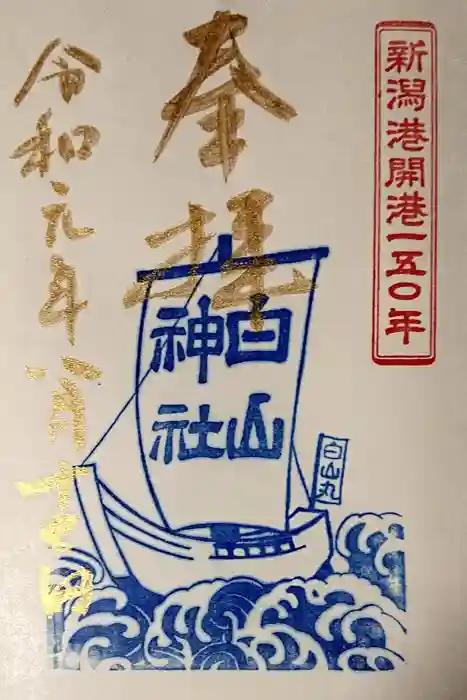 新潟港開港一五〇年
奉拝
白山
神社
白山丸
令和元年八月十四日